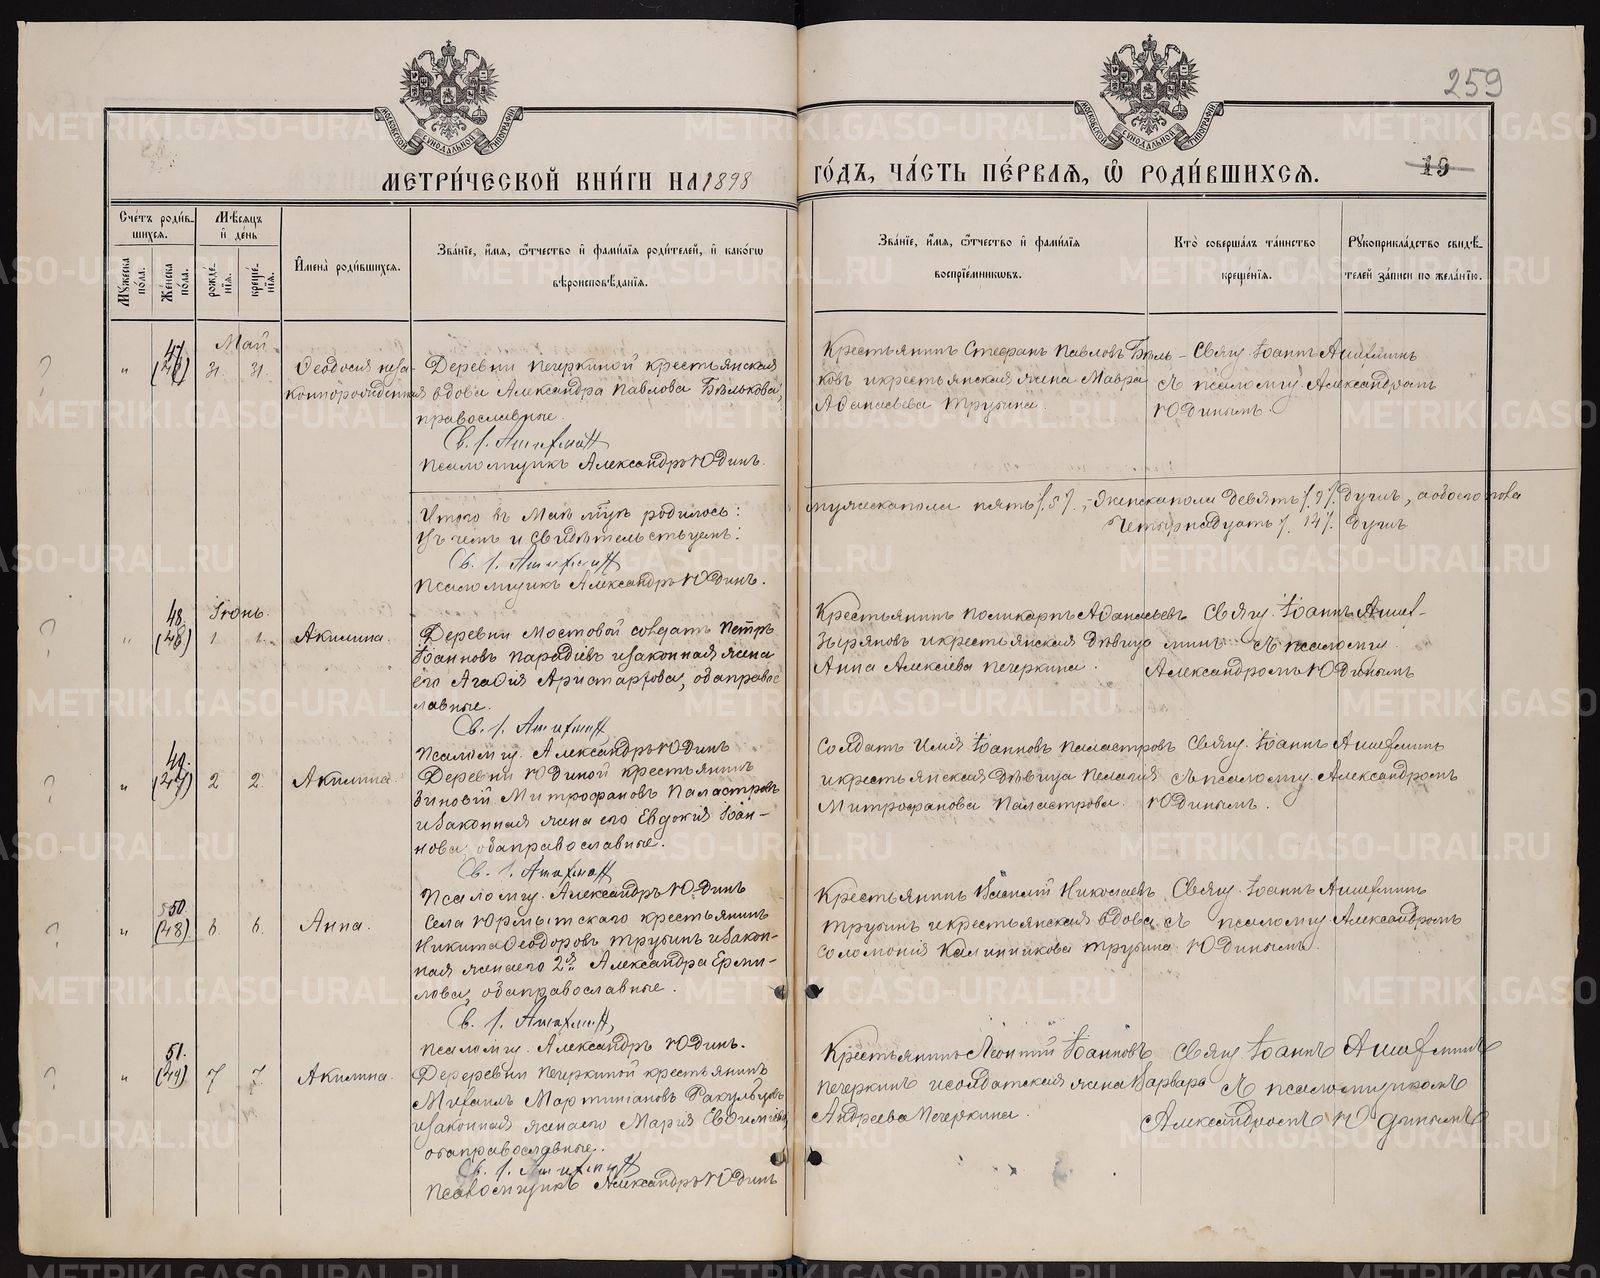 259
МОСКОВСКОЙ СѴНОДАЛЬНОЙ ТИПОГРАФІИ
МОСКОВСКОЙ СѴНОДАЛЬНОЙ ТИПОГРАФІИ
МЕТРИ́ЧЕСКОЙ КНИ́ГИ НА 1898
ГО́ДЪ, ЧА́СТЬ ПЕ́РВАЯ, Ѡ РОДИ́ВШИХСЯ.
19
Сче́тъ роди́в-
шихся.
Мѣ́сяцъ
и҆ де́нь
Му́жеска
по́ла.
Же́нска
по́ла.
рожде́-
нїя.
креще́-
нїя.
И҆мена̀ роди́вшихся.
Зва́нїе, и҆́мя, ѻ҆́тчество и҆ фами́лїя роди́телей, и҆ како́гѡ
вѣроисповѣ́данїя.
Зва́нїе, и҆́мя, ѻ҆́тчество и҆ фами́лїя
воспрїе́мниковъ.
Кто̀ соверша́лъ та́инство
креще́нїя.
Рукоприкла́дство свидѣ́-
телей за́писи по жела́нїю.
Май
47
31. 31.
Ѳеодосія неза-
коннорожденная
Деревни Печеркиной крестьянская
вдова Александра Павлова Бѣлькова,
православные.
Псаломщикъ Александръ Юдинъ.
Крестьянинъ Стефанъ Павловъ Бѣль-
ковъ и крестьянская жена Мавра
Аѳанасьева Трубина.
Свящ. Іоаннъ
съ псаломщ. Александромъ
Юдинымъ.
Итого въ Маѣ м-цѣ родилось:
Въ чемъ и свидѣтельствуемъ:
Псаломщикъ Александръ Юдинъ.
мужеска пола пять /.5/., женска пола девять /.9/. душъ, а обоего пола
четырнадцать /.14/. душъ
Іюнь.
48.
(46)
1. 1.
Акилина.
Деревни Мостовой солдатъ Петръ
Іоанновъ и законная жена
его Агаѳія Аристархова, оба правос-
лавные.
Псаломщ. Александръ Юдинъ
Крестьянинъ Поликарпъ Аѳанасьевъ
Зыряновъ и крестьянская дѣвица
Анна Алексіева Печеркина.
Свящ. Іоаннъ
съ псаломщ.
Александромъ Юдинымъ
49.
(47)
2 2.
Акилина.
Деревни Юдиной крестьянинъ
Зиновій Митрофановъ Паластровъ
и законная жена его Евдокія Іоан-
нова, оба православные.
Псаломщ. Александръ Юдинъ
Солдатъ Илія Іоанновъ Паластровъ
и крестьянская дѣвица Пелагія
Митрофанова Паластрова.
Свящ. Іоаннъ
съ псаломщ. Александромъ
Юдинымъ.
50
(48)
6. 6.
Анна.
Села Юрмытскаго крестьянинъ
Никита Ѳеодоровъ Трубинъ и закон-
ная жена его 2я Александра Ерми-
лова, оба православные.
Псаломщ. Александръ Юдинъ.
Крестьянинъ Василій Николаевъ
Трубинъ и крестьянская вдова
Соломонія Калинникова Трубина.
Свящ. Іоаннъ
съ псаломщ. Александромъ
Юдинымъ.
51.
(49)
7 7.
Акилина.
Деревни Печеркиной крестьянинъ
Михаилъ Мартиніановъ
и законная жена его Марія Евѳиміева,
оба православные.
Псаломщикъ Александръ Юдинъ
Крестьянинъ Леонтій Іоанновъ
Печеркинъ и солдатская жена Варвара
Андреева Печеркина.
Свящ. Іоаннъ
съ псаломщикомъ
Александромъ Юдинымъ
METRIKI.GASO-URAL.RU